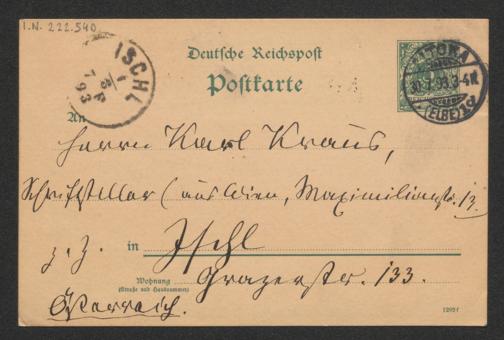 I.N. 222.540
ISCHL
7 93
Deutsche Reichspost
Postkarte
ALTONA
30.7.93.3-4N
(ELBE)
An
Herrn Karl Kraus,
Schriftsteller (aus Wien, Maximilianstr. 13.
z. Z. in Ischl
Wohnung
(Straße und Hausnummer)
Grazerstr. 133.
Österreich.